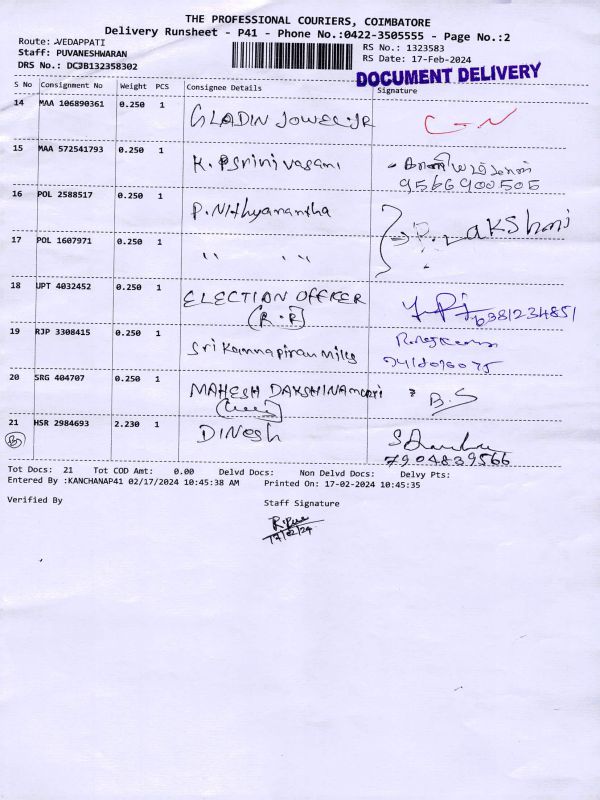 THE PROFESSIONAL COURIERS, COIMBATORE
Delivery Runsheet - P41 - Phone No.:0422-3505555 - Page No.:2
Route: VEDAPPATI
RS No.: 1323583
Staff: PUVANESHWARAN
RS Date: 17-Feb-2024
DRS No.: DCJB132358302
DOCUMENT DELIVERY
S No Consignment No Weight PCS Consignee Details Signature
14 MAA 106890361 0.250 1 GLADIN JOWEL.JR
15 MAA 572541793 0.250 1 K. PSrinivasan
9566900505
16 POL 2588517 0.250 1 P. Nithyanantha
P. LAKShmi
17 POL 1607971 0.250 1 " "
18 UPT 4032452 0.250 1 ELECTION OFFICER
(R.P) 6381234851
19 RJP 3308415 0.250 1 Sri Kannapiran Mills
20 SRG 404707 0.250 1 MAHESH DAKSHINAmoori B.S
21 HSR 2984693 2.230 1 DINesh
7904839566
Tot Docs: 21 Tot COD Amt: 0.00 Delvd Docs: Non Delvd Docs: Delvy Pts:
Entered By :KANCHANAP41 02/17/2024 10:45:38 AM Printed On: 17-02-2024 10:45:35
Verified By Staff Signature
17/02/24